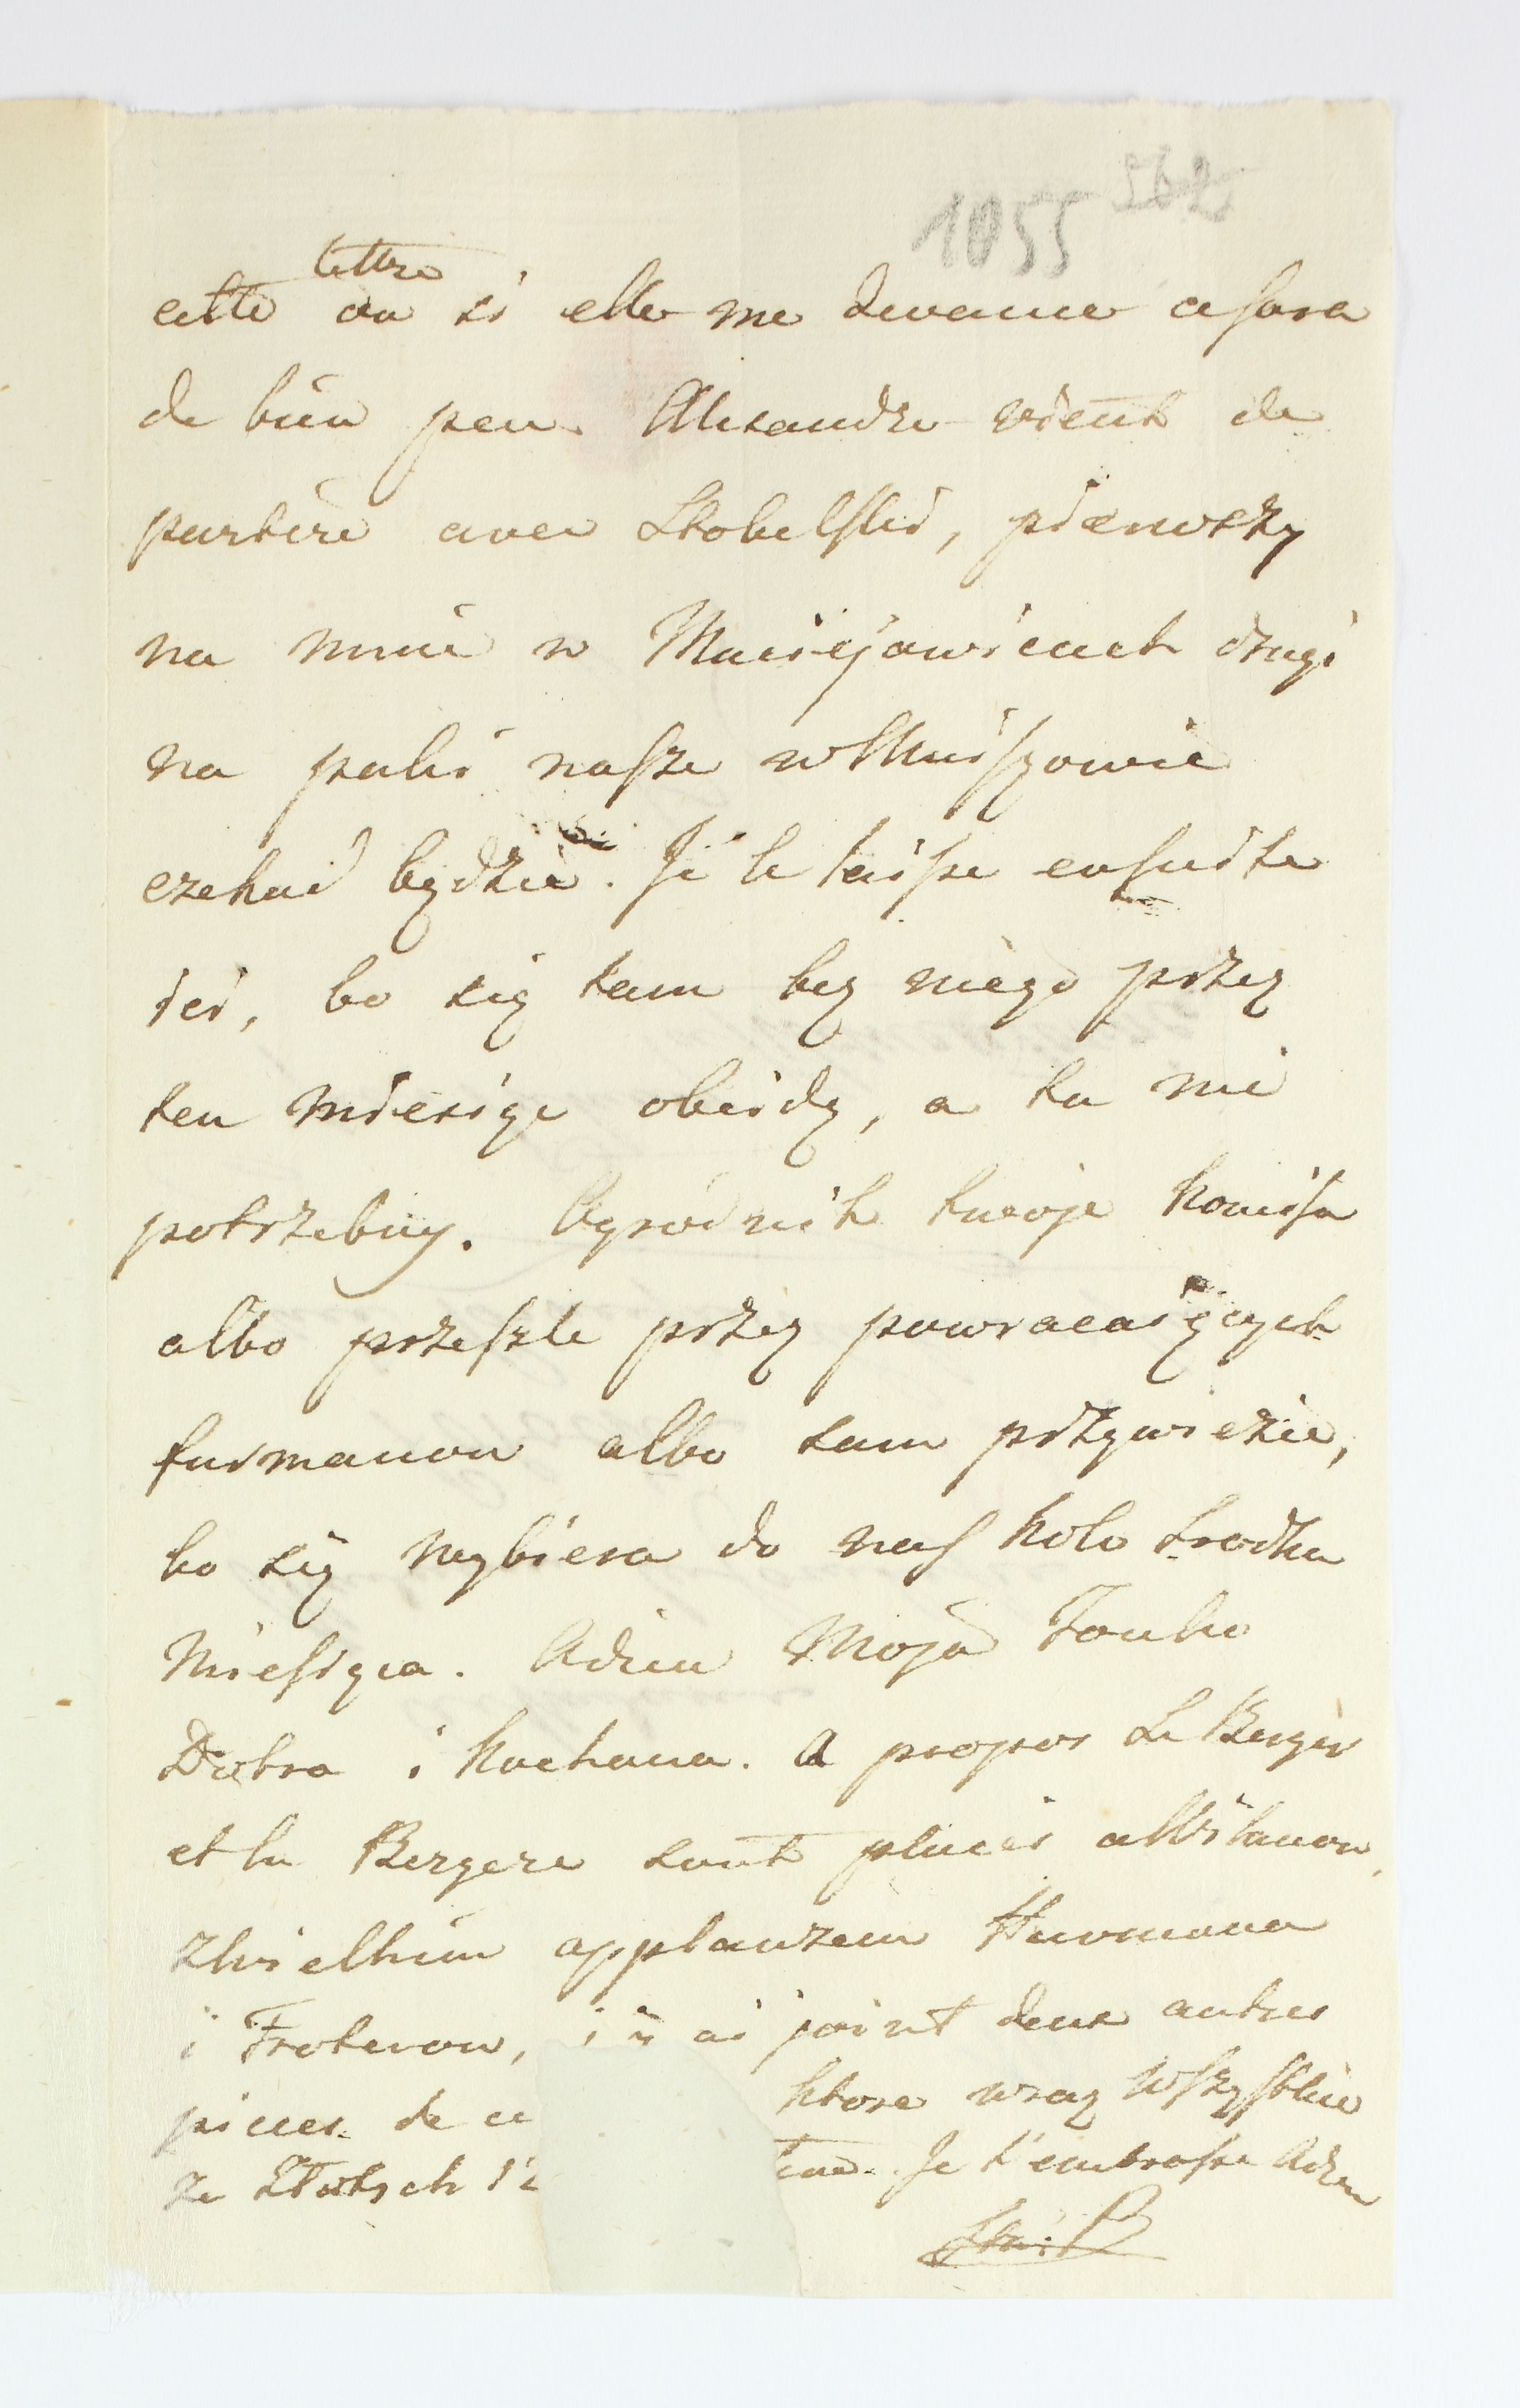 1055 562
lettre
cette ou si elle me devance ce sera
de bien peu. Alexandre vient de
partire avec Skobelski, pierwszy
na mnie w Maciejowicach drugi
na paki nasze w Mniszowie
czekać będzie. Je le laisse ensuite
ici, bo się tam bez niego przez
ten miesiąc obeidą, a tu mi
potrzebny. Ogrodnik twoje
albo przeszle przez powracaiących
furmanow albo sam przywiezie,
bo się wybiera do nas kolo srodka
Miesiąca. Adieu Moja Tonko
Dobra i Kochana. A propos Le Berger
et la Bergere sont placés
z wielkim applauzem Hermana
i Froterow, j'y ai joint deux autres
pieces de ce ktore wraz wszystkie
ze Je t'embrasse Adieu